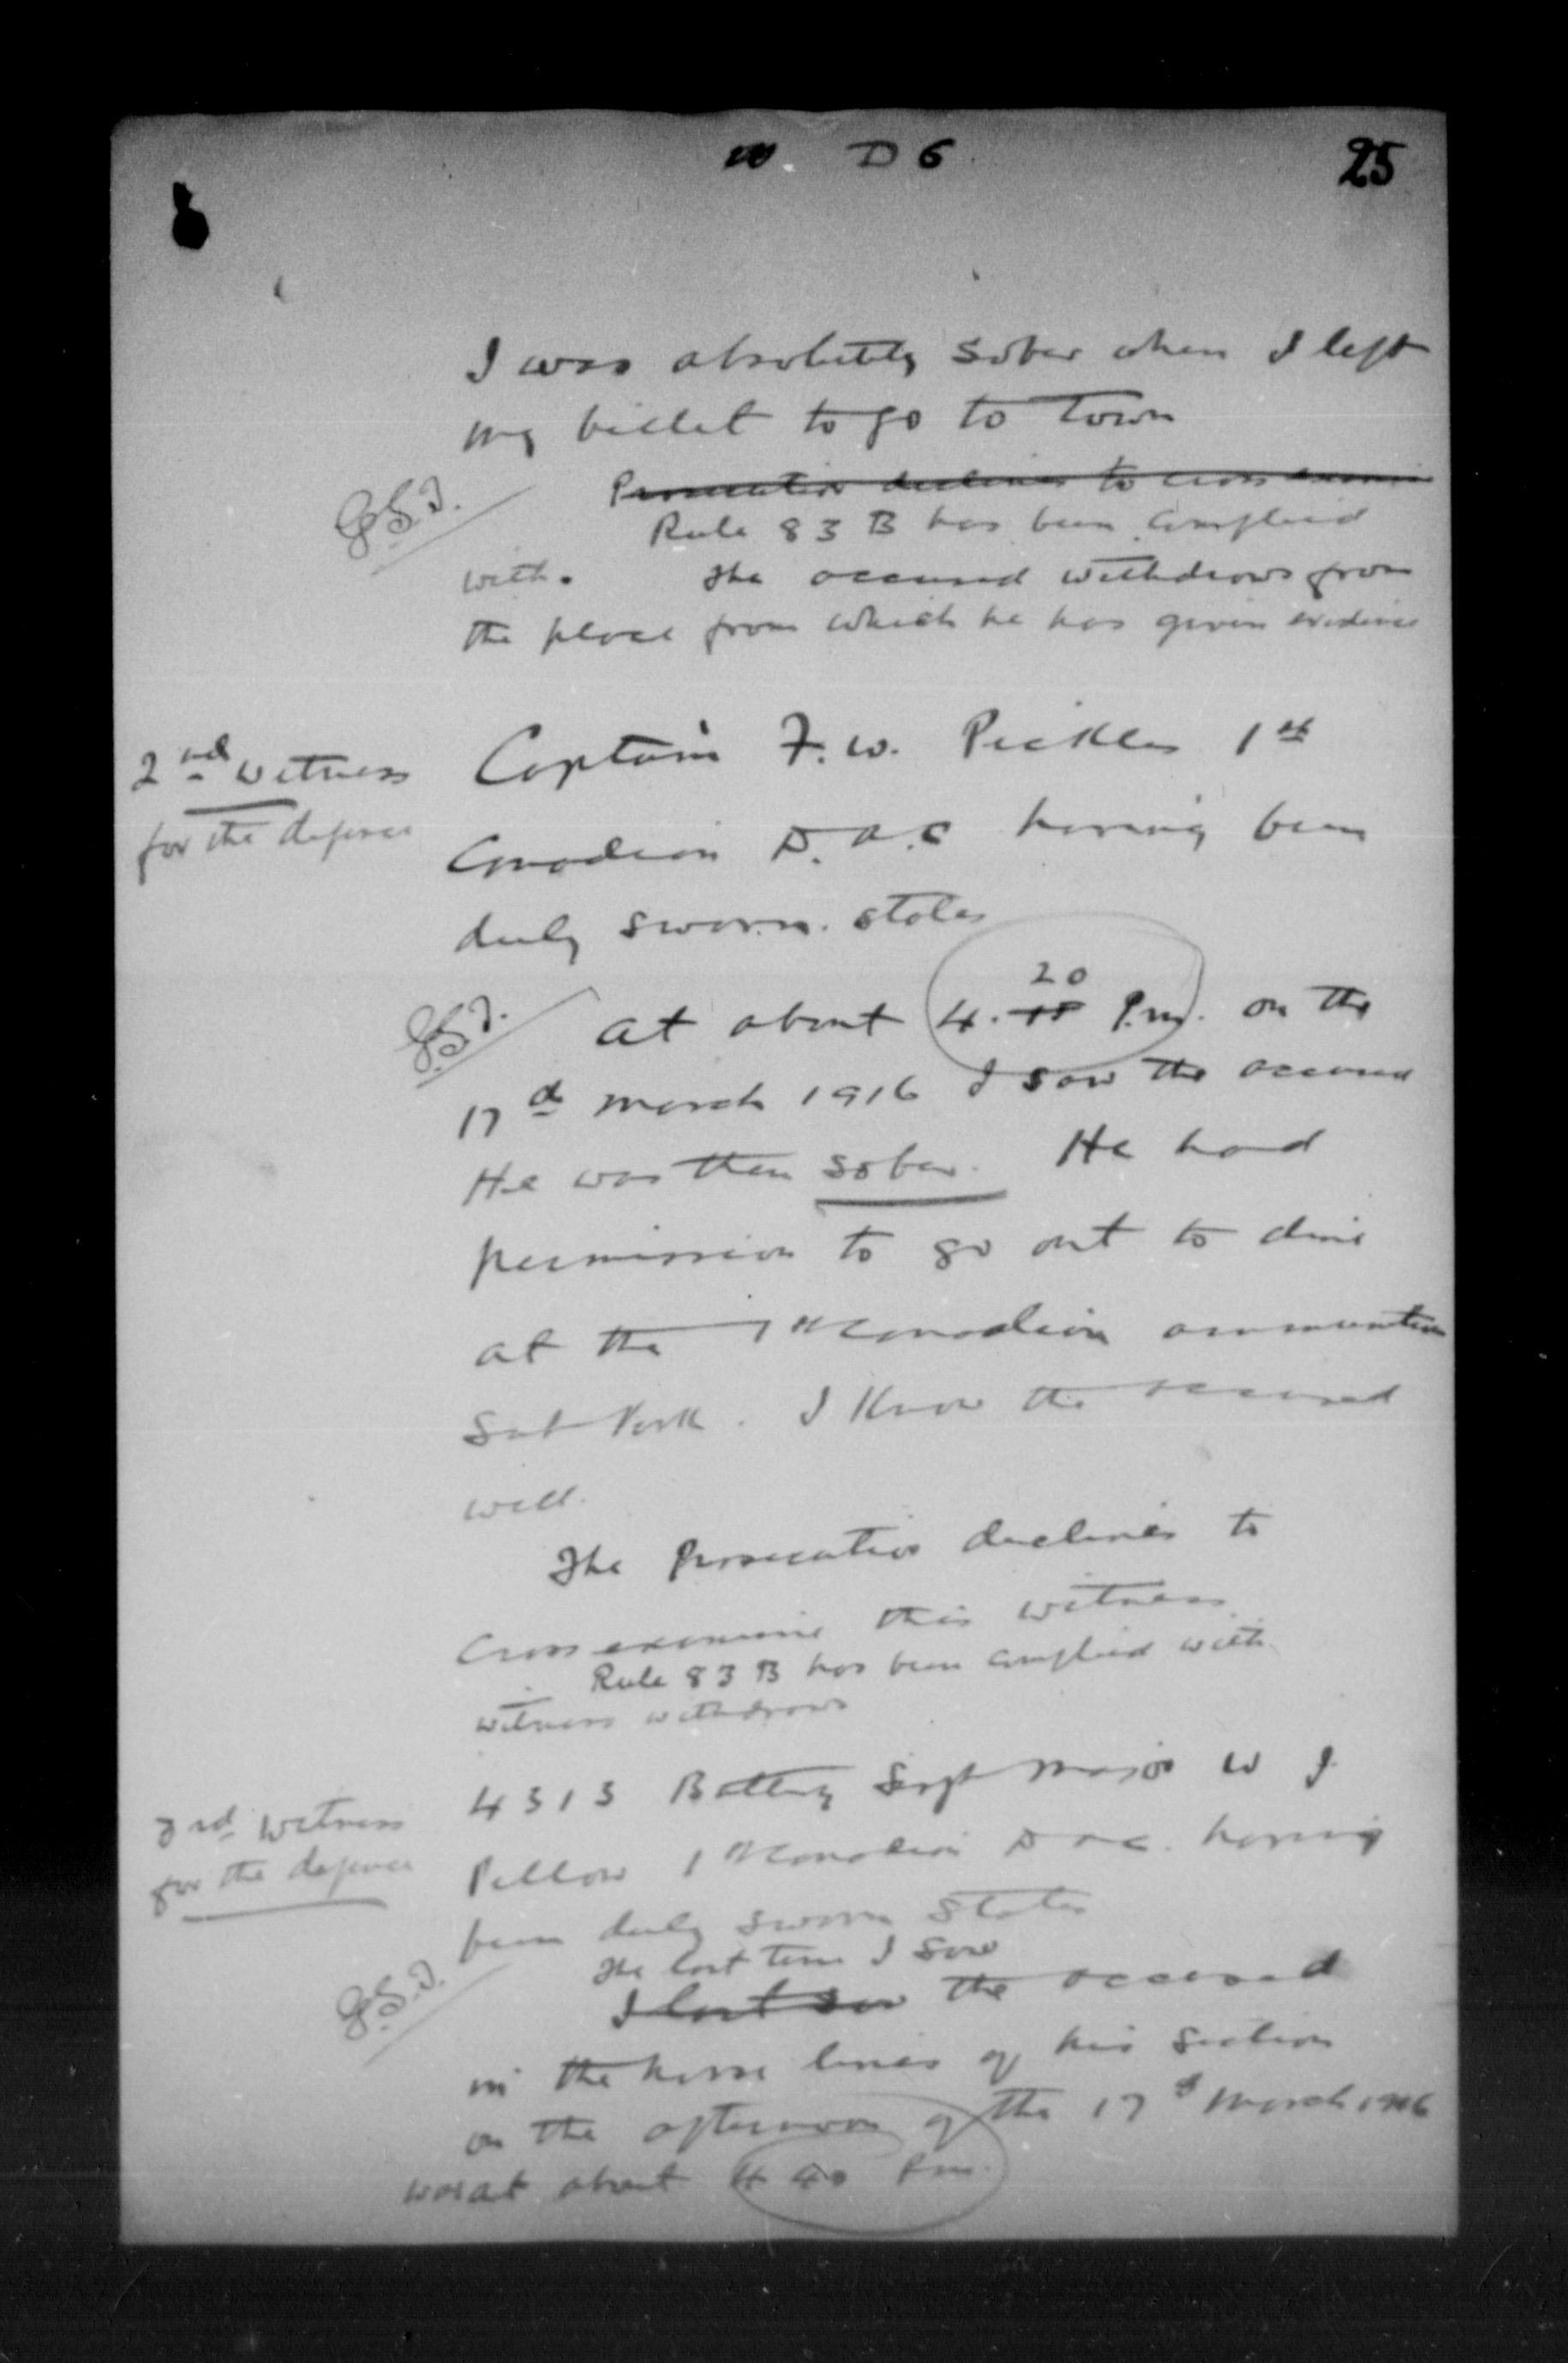 D 6
25
I was absolutely sober when I left
my billet to go to Town
G.S.J.
Prosecution declines to cross examine
Rule 83 B has been complied
with. The accused withdraws from
the place from which he has given evidence
2nd witness
for the defence
Captain F. W. Pickles 1st
Canadian D.A.C having been
duly sworn. states
20
at about 4.15 P.m. on the
17th March 1916 I saw the accused
He was then sober. He had
permission to go out to dine
at the 1st Canadian ammunition
Sub Park. I know the accused
well.
The Prosecution declines to
Cross examine this witness
Rule 83 B has been complied with
witness withdraws
3rd witness
for the defence
4313 Battery Sergt Major W J.
Pellow 1st Canadian D A C. having
been duly sworn states
The last time I saw
I last saw the accused
in the horse lines of his section
on the afternoon of the 17th March 1916
was at about 4 40 P.m.